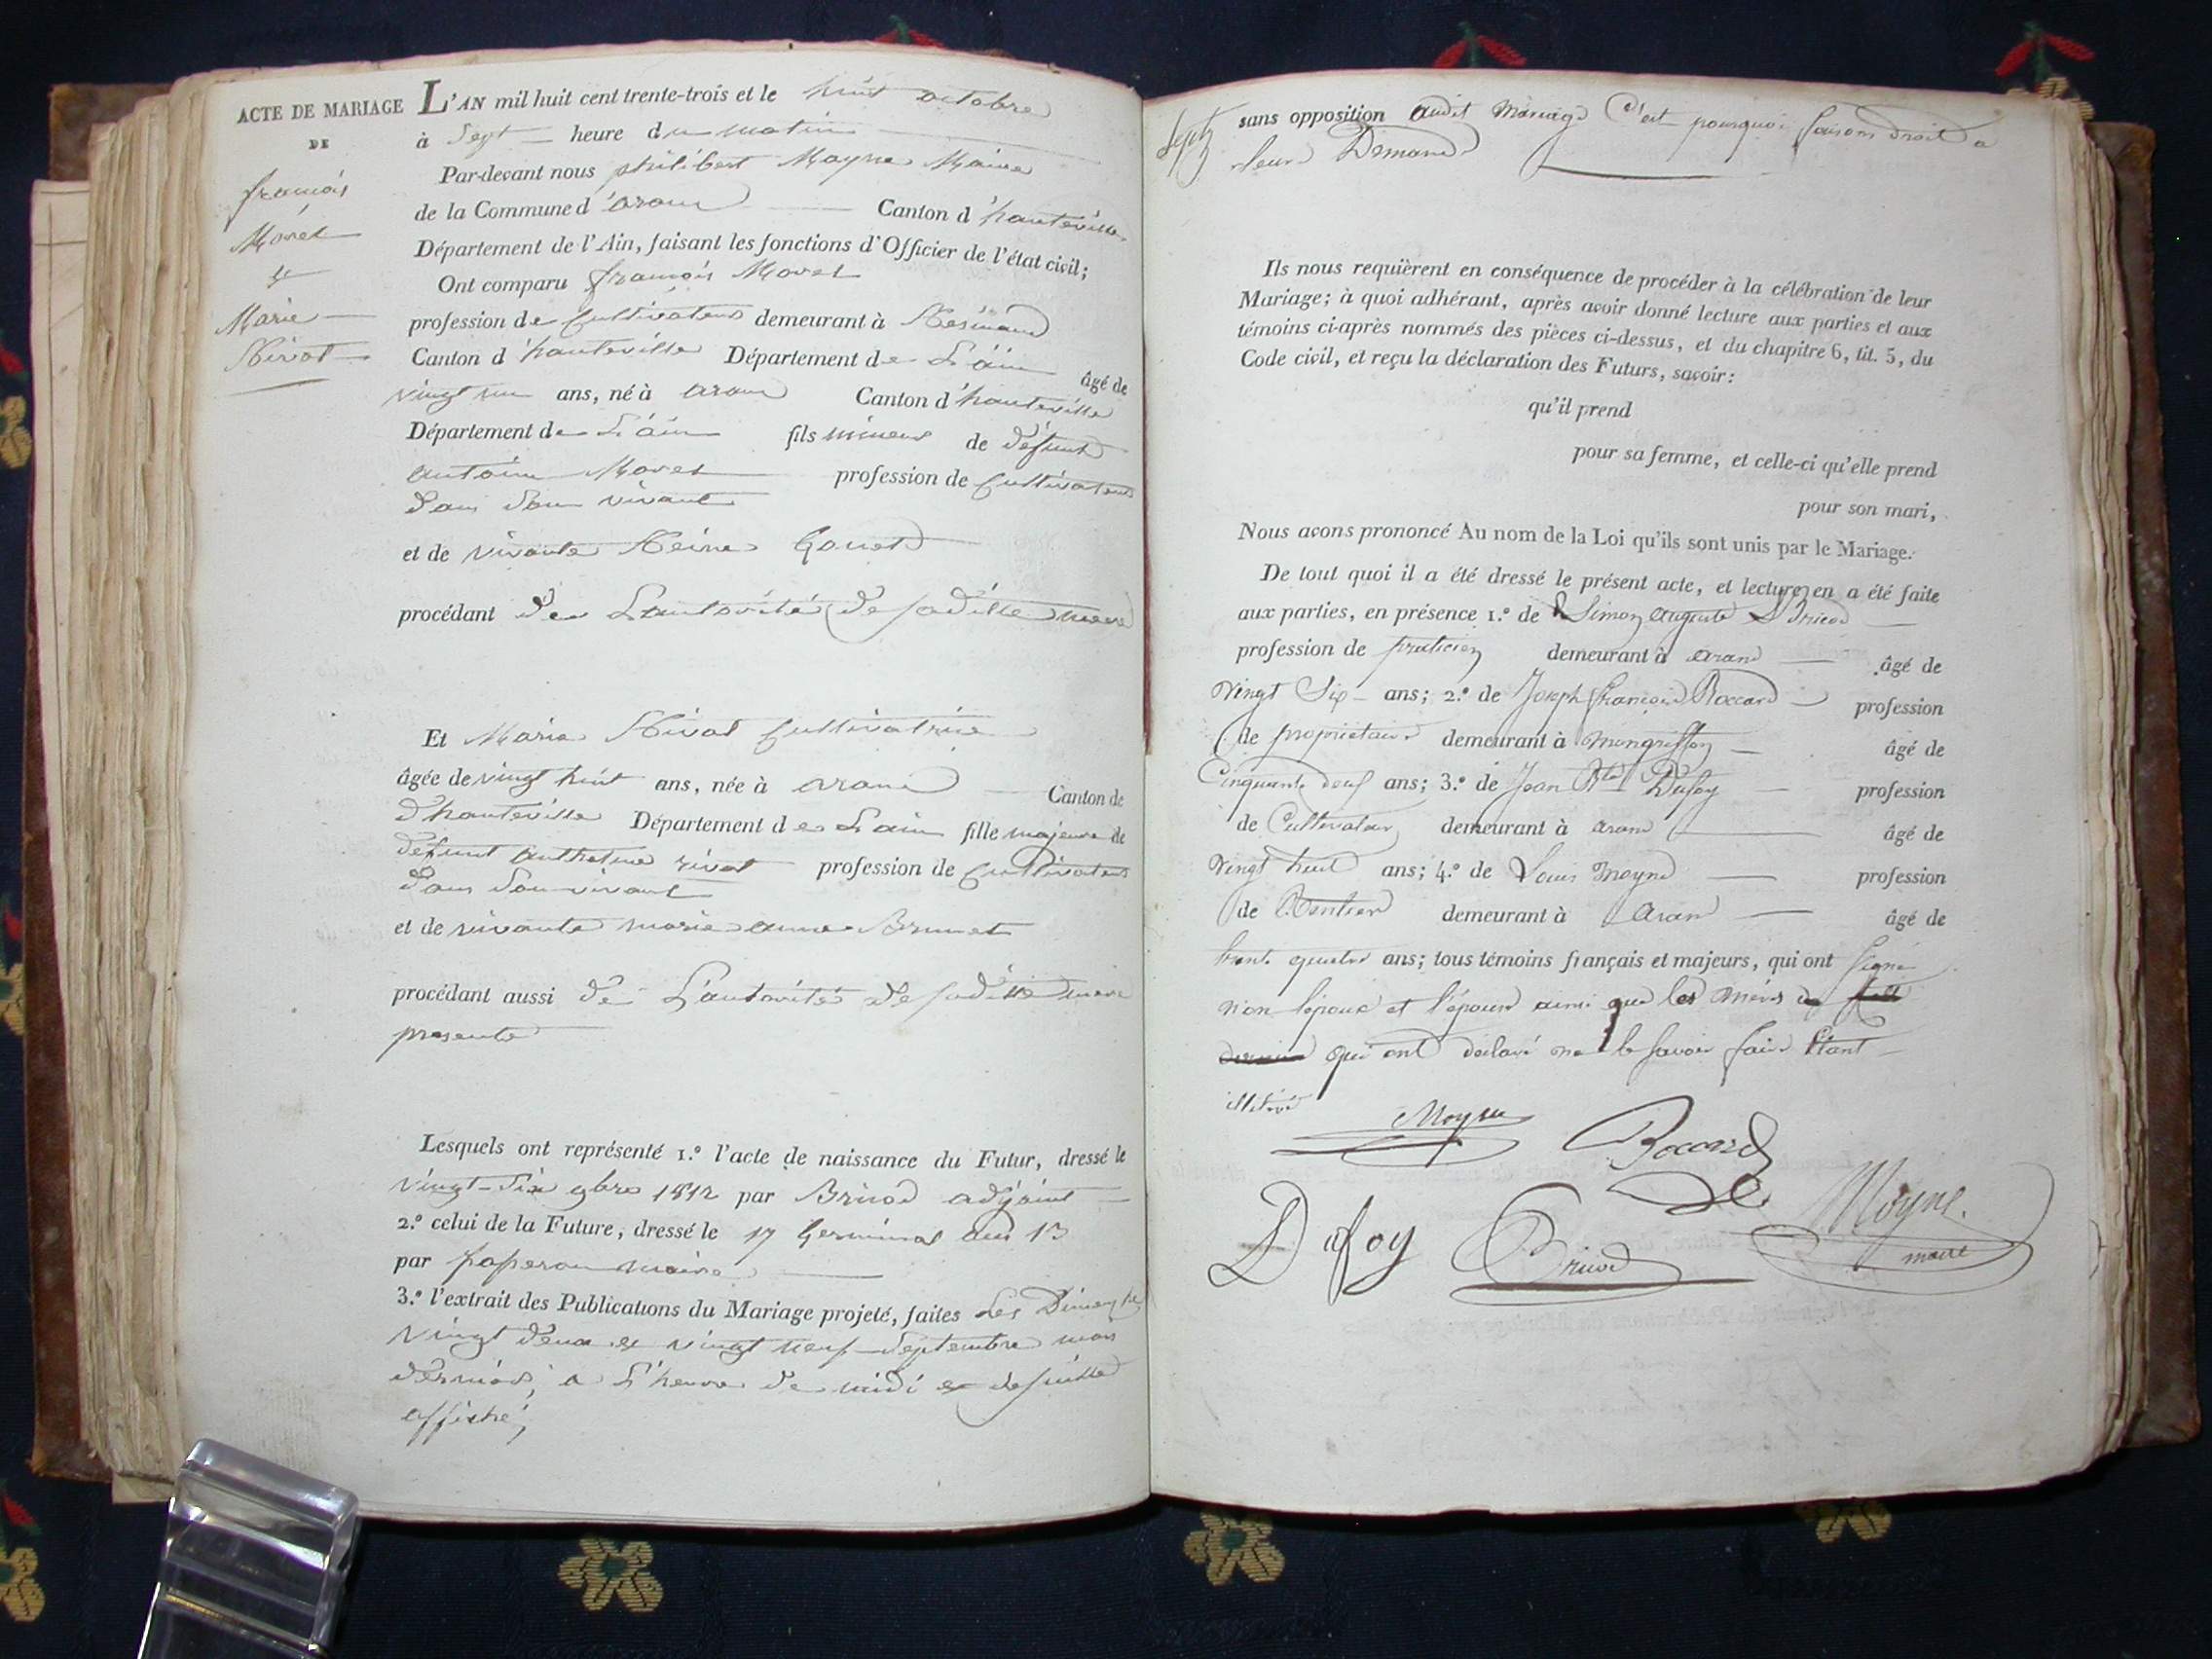 ACTE DE MARIAGE
DE
françois
Moret
et
Marie
Rivat
L'AN mil huit cent trente-trois et le huit octobre
à Sept heure du matin
Par-devant nous philibert Moyne Maire
de la Commune d'aranc Canton d'hauteville
Département de l'Ain, faisant les fonctions d'Officier de l'état civil;
Ont comparu françois Moret
profession de Cultivateur demeurant à
Canton d'hauteville Département de L'ain âgé de
vingt un ans, né à aranc Canton d'hauteville
Département de L'ain fils mineur de défunt
antoine Moret profession de Cultivateur
dans Son vivant
et de vivante Reine
procédant de L'autorité de sadille mere
Et Marie Rivat Cultivatrice
âgée de vingt huit ans, née à aranc Canton de
d'hauteville Département de Lain fille majeure de
défunt anthelme rivat profession de Cultivateur
dans Son vivant
et de vivante marie anne Brunet
procédant aussi de L'autorité de sadite mere
presente
Lesquels ont représenté 1.° l'acte de naissance du Futur, dressé le
vingt-Six 9bre 1812 par Bricod adjoint
2.° celui de la Future, dressé le 17 Germinal an 13
par maire
3.° l'extrait des Publications du Mariage projeté, faites Les Dimanche
vingt deux et vingt neuf Septembre mois
dernier, a L'heure de midi et de suitte
affiché,
sans opposition audit Mariage C'est pourquoi faisons droit a
leur Demande
Ils nous requièrent en conséquence de procéder à la célébration de leur
Mariage; à quoi adhérant, après avoir donné lecture aux parties et aux
témoins ci-après nommés des pièces ci-dessus, et du chapitre 6, tit. 5, du
Code civil, et reçu la déclaration des Futurs, savoir:
qu'il prend
pour sa femme, et celle-ci qu'elle prend
pour son mari,
Nous avons prononcé Au nom de la Loi qu'ils sont unis par le Mariage.
De tout quoi il a été dressé le présent acte, et lecture en a été faite
aux parties, en présence 1.° de Simon auguste Bricod
profession de praticien demeurant à aranc âgé de
vingt Six ans; 2.° de Joseph françois Boccard profession
de propriétaire demeurant à mongriffon âgé de
Cinquante deux ans; 3.° de Jean Bte Dufoy profession
de Cultivateur demeurant à aranc âgé de
vingt huit ans; 4.° de Louis Moyne profession
de Rentier demeurant à aranc âgé de
trente quatre ans; tous témoins français et majeurs, qui ont signé
non l'époux et l'épouse ainsi que les mères
qui ont déclaré ne le savoir faire Etant
illitéré
Moyne
Boccard
Dufoy
Bricod
Moyne.
maire